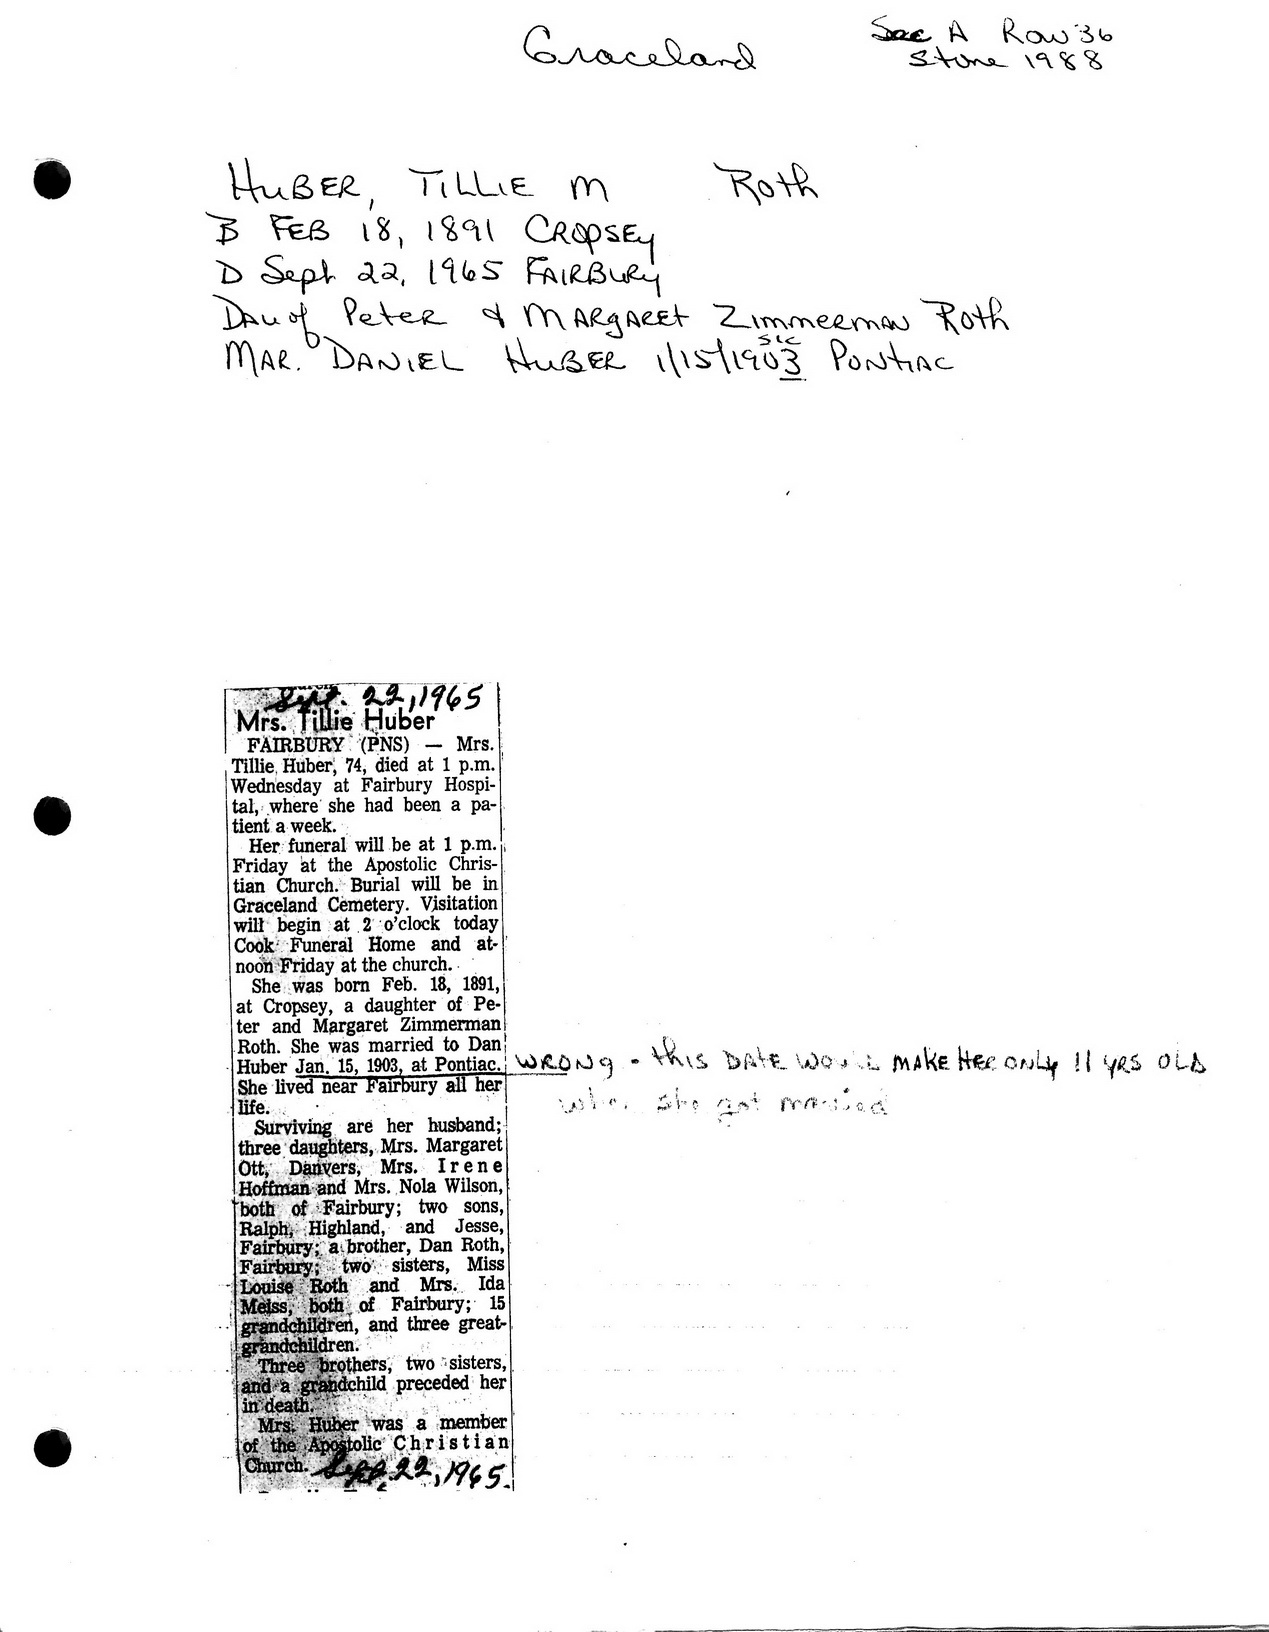 Graceland
Sec A Row 36
Stone 1988
HUBER, TILLIE M Roth
B FEB 18, 1891 CROPSEY
D Sept 22, 1965 FAIRBURY
DAU of PETER & MARGARET ZIMMERMAN ROTH
sic
MAR. DANIEL HUBER 1/15/1903 PONTIAC
Sept. 22, 1965
Mrs. Tillie Huber
FAIRBURY (PNS) — Mrs.
Tillie Huber, 74, died at 1 p.m.
Wednesday at Fairbury Hospi-
tal, where she had been a pa-
tient a week.
Her funeral will be at 1 p.m.
Friday at the Apostolic Chris-
tian Church. Burial will be in
Graceland Cemetery. Visitation
will begin at 2 o'clock today
Cook Funeral Home and at
noon Friday at the church.
She was born Feb. 18, 1891,
at Cropsey, a daughter of Pe-
ter and Margaret Zimmerman
Roth. She was married to Dan
Huber Jan. 15, 1903, at Pontiac. WRONG - this DATE WOULD MAKE HER ONLY 11 YRS OLD
when she got married
She lived near Fairbury all her
life.
Surviving are her husband;
three daughters, Mrs. Margaret
Ott, Danvers, Mrs. Irene
Hoffman and Mrs. Nola Wilson,
both of Fairbury; two sons,
Ralph, Highland, and Jesse,
Fairbury; a brother, Dan Roth,
Fairbury; two sisters, Miss
Louise Roth and Mrs. Ida
Meiss, both of Fairbury; 15
grandchildren, and three great-
grandchildren.
Three brothers, two sisters,
and a grandchild preceded her
in death.
Mrs. Huber was a member
of the Apostolic Christian
Church. Sept. 22, 1965.